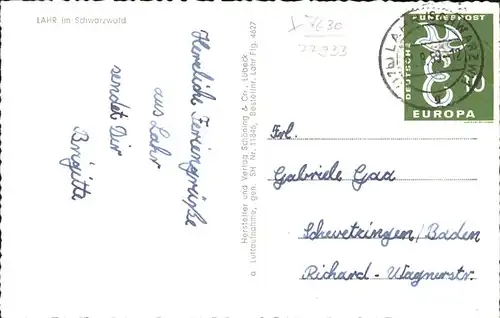 LAHR im Schwarzwald
Herzliche Feriengrüße
aus Lahr
sendet Dir
Brigitte
Hersteller und Verlag Schöning & Co., Lübeck
a Luftaufnahme, gen. SH Nr. 11846, Bestellnr. Lahr Flg. 4627
7630
22933
LAHR (SCHWARZW
DEUTSCHE
BUNDESPOST
10
EUROPA
Frl.
Gabriele Gaa
Schwetzingen/Baden
Richard-Wagnerstr.